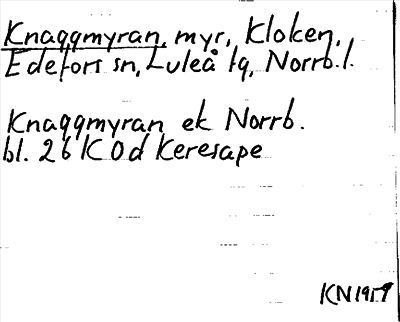 Knaggmyran, myr, Kloken,
Edefors sn, Luleå tg, Norrb.l.
Knaggmyran ek Norrb.
bl. 26 K 0d Keresape
KN 1959